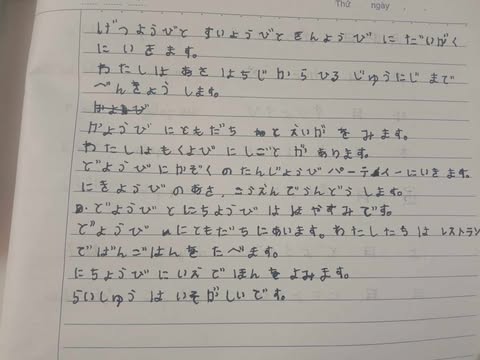 Thứ ngày
げつようびと すいようびと きんようび に だいがく
に いきます。
わたしは あさ はちじ から ひる じゅうにじ まで
べんきょう します。
かようび
かようび に ともだち と えいが を みます。
わたしは もくようび に しごと が あります。
どようび に かぞく の たんじょうび パーティー に いき ます。
にちようび の あさ、こうえん で うんどう します。
どようび と にちようび は は やすみ です。
どようび に ともだち に あいます。わたしたち は レストラン
で ばんごはん を たべ ます。
にちようび に いえ で ほん を よみ ます。
らいしゅう は いそがしい です。